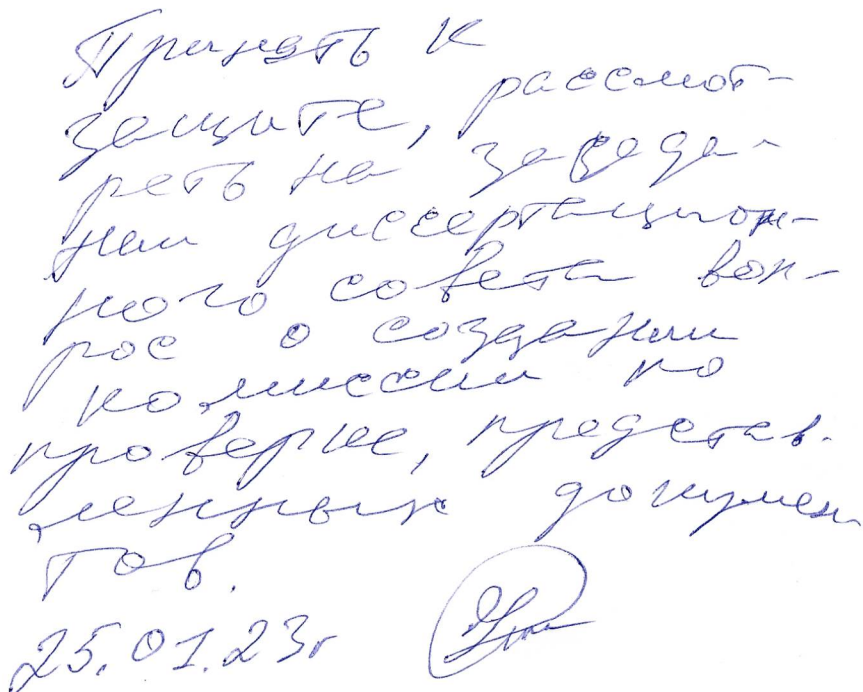 Принять к
защите, рассмот-
реть на заседа-
нии диссертацион-
ного совета воп-
рос о создании
комиссии по
проверке, представ-
ленных докумен
тов.
25.01.23г